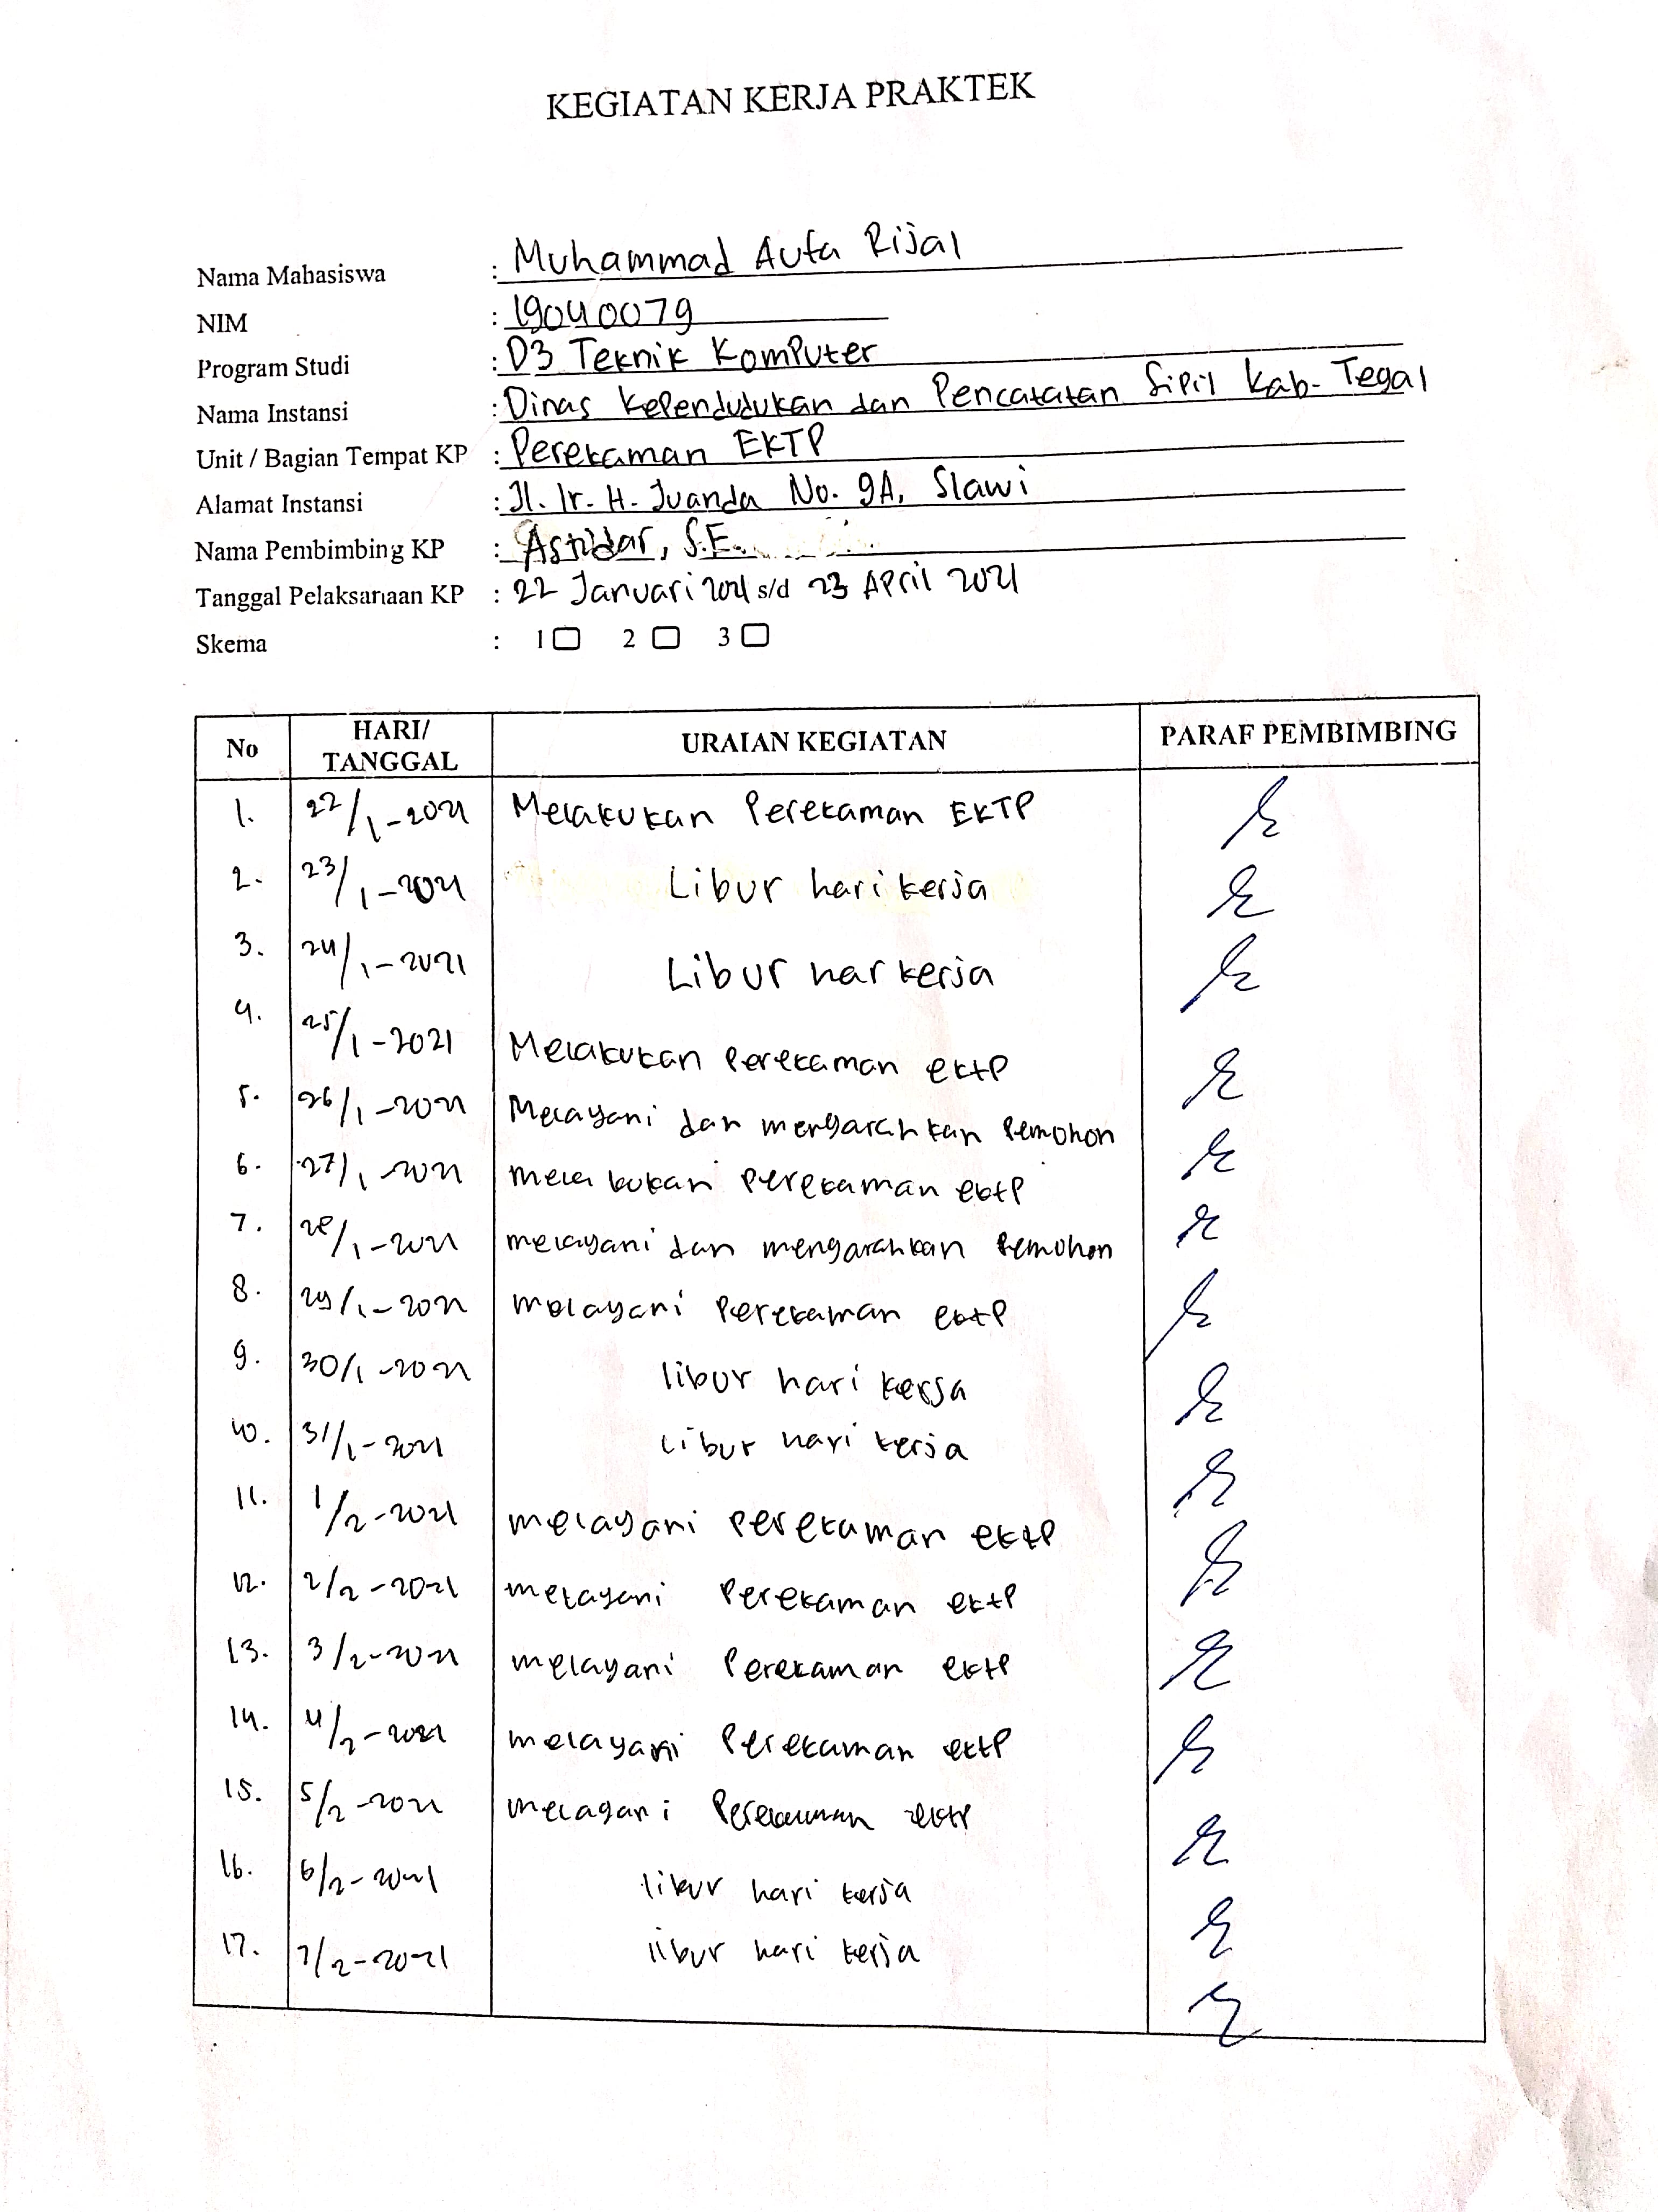 KEGIATAN KERJA PRAKTEK
Nama Mahasiswa : Muhammad Aufa Rijal
NIM : 19040079
Program Studi : D3 Teknik Komputer
Nama Instansi : Dinas Kependudukan dan Pencatatan Sipil Kab. Tegal
Unit / Bagian Tempat KP : Perekaman EKTP
Alamat Instansi : Jl. Ir. H. Juanda No. 9A, Slawi
Nama Pembimbing KP : Astidar, S.E.
Tanggal Pelaksanaan KP : 22 Januari 2021 s/d 23 April 2021
Skema : 1 2 3
No HARI/ TANGGAL URAIAN KEGIATAN PARAF PEMBIMBING
1. 22/1-2021 Melakukan Perekaman EKTP
2. 23/1-2021 Libur hari kerja
3. 24/1-2021 Libur har kerja
4. 25/1-2021 Melakukan Perekaman ektp
5. 26/1-2021 Melayani dan mengarahkan Pemohon
6. 27/1-2021 melakukan perekaman ektp
7. 28/1-2021 melayani dan mengarahkan Pemohon
8. 29/1-2021 melayani Perekaman ektp
9. 30/1-2021 libur hari kerja
10. 31/1-2021 libur hari kerja
11. 1/2-2021 melayani perekaman ektp
12. 2/2-2021 melayani Perekaman ektp
13. 3/2-2021 melayani Perekaman ektp
14. 4/2-2021 melayani Perekaman ektp
15. 5/2-2021 melayani Perekaman ektp
16. 6/2-2021 libur hari kerja
17. 7/2-2021 libur hari kerja